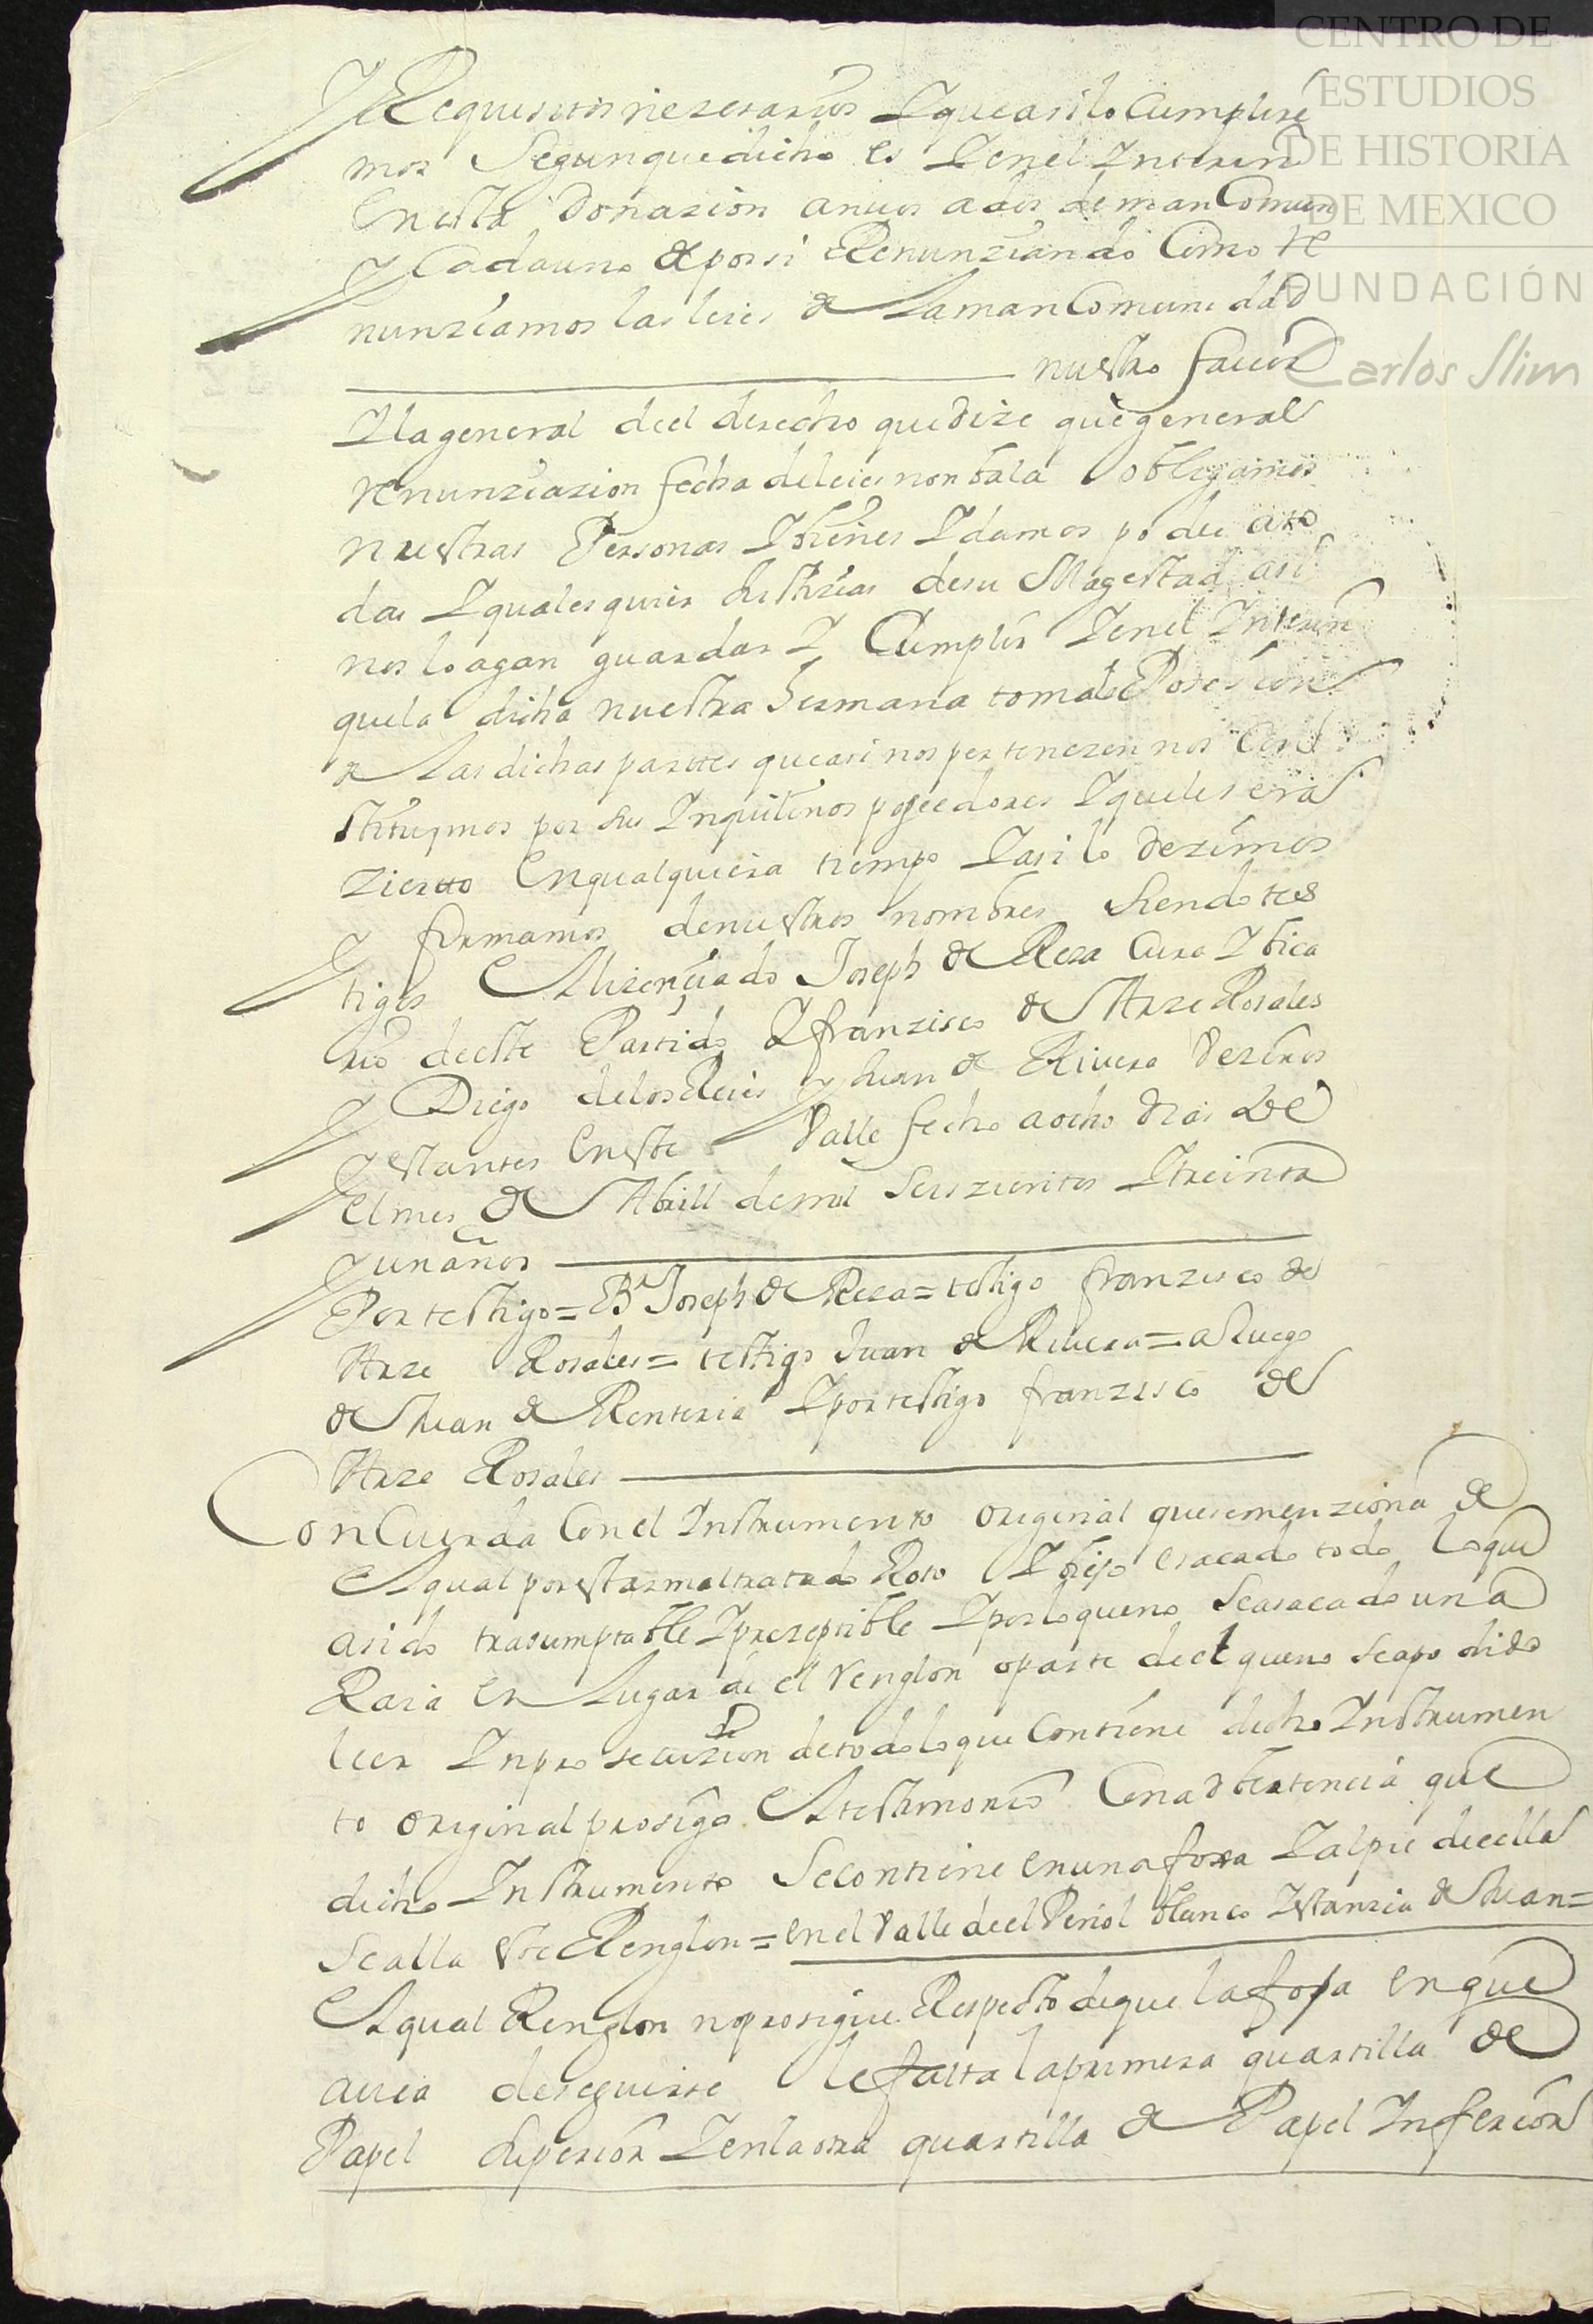 CENTRO DE
ESTUDIOS
DE HISTORIA
DE MEXICO
FUNDACIÓN
Carlos Slim
Y Requisitos nezesarios Y que asi lo Cumplire
mos Segun que dicho es Y en el Interin
En esta donazion anuos a dos de man Comun
Y Cada uno de por si Renunziando Como re
nunziamos las leies de La man Comunidad
nuestro fauor
Y la general de el derecho que dize que general
renunziazion fecha de leies non bala obligamos
nuestras Personas Y bienes Y damos poder a to
das Y qualesquier Justizias de su Magestad asi
nos lo agan guardar Y Cumplir Y en el Interin
que la dicha nuestra hermana toma la Posesion
de Las dichas partes que asi nos pertenezen nos Con
stituymos por sus Inquilinos poseedores Y que les era
zierto En qualquiera tiempo Y asi lo dezimos
Y firmamos de nuestros nombres Siendo tes
tigos El lizenciado Joseph de Reza Cura Y bica
rio de este Partido Y franzisco de Arze Rosales
Y Diego de los Reies Y Juan de Riuera Vezinos
Y estantes En este Valle fecho a ocho dias de
el mes de Abrill de mil Seiszientos Y treinta
Y un años
Por testigo = Br Joseph de Reza = testigo franzisco de
Arze Rosales = testigo Juan de Riuera = a Ruego
de Juan de Renteria Y por testigo franzisco de
Arze Rosales
Concuerda Con el Instrumento original que se menziona de
El qual por estar maltratado Roto Y biejo e sacado todo Lo que
a sido trasumptable Y preseptible Y por lo que no Se a sacado una
Raia en Lugar de el renglon o parte de el que no Se a podido
leer Y en prosecuzion de todo lo que Contiene dicho Instrumen
to original prosigo El testimonio Con adbertencia que
dicho Instrumento Se contiene en una foxa Y al pie de ella
Se alla este Renglon = en el Valle de el Peñol blanco Estanzia de Juan =
El qual Renglon no prosigue Respecto de que la foja en que
auia de seguirse le falta la primera quartilla de
Papel Superior Y en la otra quartilla de Papel Inferior